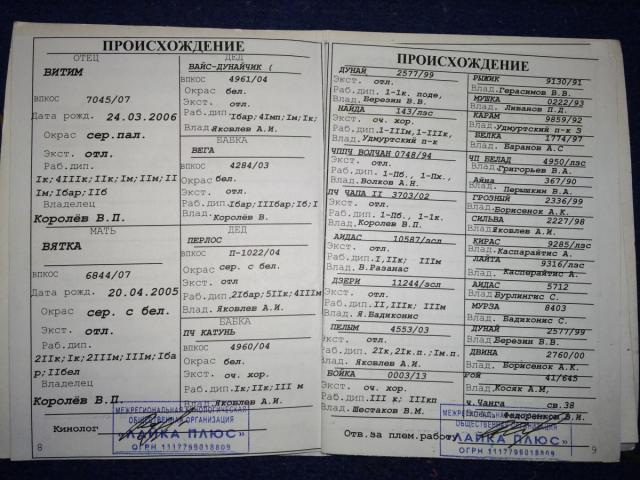 ПРОИСХОЖДЕНИЕ
ОТЕЦ
ВИТИМ
ВПКОС 7045/07
Дата рожд. 24.03.2006
Окрас сер.пал.
Экст. отл.
Раб.дип.
Iк;4IIIк;IIк;Iм;IIм;II
Iм;Iбар;IIб
Владелец
Королёв В.П.
МАТЬ
ВЯТКА
ВПКОС 6844/07
Дата рожд. 20.04.2005
Окрас сер. с бел.
Экст. отл.
Раб.дип.
2IIк;Iк;2IIIм;IIIм;Iба
р;IIбел
Владелец
Королёв В.П.
Кинолог
8
ДЕД
ВАЙС-ДУНАЙЧИК (
ВПКОС 4961/04
Окрас бел.
Экст. отл.
Раб.дип.
Iбар;4Iмп;Iм;Iк;
Влад Яковлев А.И.
БАБКА
ВЕГА
ВПКОС 4284/03
Окрас бел.
Экст. отл.
Раб.дип. Iбар;IIIбар;Iб;I
Влад. Королёв В.
ДЕД
ПЕРЛОС
ВПКОС П-1022/04
Окрас сер. с бел.
Экст. отл
Раб.дип. 2Iбар;5IIк;4IIIм
Влад. Яковлев А.И.
БАБКА
ПЧ КАТУНЬ
ВПКОС 4960/04
Окрас бел.
Экст. оч. хор.
Раб.дип. Iк;IIк;III м
Влад. Яковлев А.И.
МЕЖРЕГИОНАЛЬНАЯ КИНОЛОГИЧЕСКАЯ
ОБЩЕСТВЕННАЯ ОРГАНИЗАЦИЯ
«ЛАЙКА ПЛЮС»
ОГРН 1117799018809
ПРОИСХОЖДЕНИЕ
ДУНАЙ 2577/99
Экст. отл.
Раб.дип. 1-1к. поде,
Влад. Березин В.В.
НАЙДА 143/лэс
Экст. оч. хор.
Раб.дип. 1-IIIм,1-IIIк,
Влад. Удмуртский п-к
ЧППЧ ВОЛЧАН 0748/94
Экст. отл.
Раб.дип. 1-Пб., 1-Пх.,
Влад. Волков А.Н.
ПЧ ЧАПА II 3703/02
Экст. отл.
Раб.дип. 1-Пб., 1-1к.
Влад. Королев В.П.
АЙДАС 10587/эсл
Экст. отл.
Раб.дип. I,IIк; IIIм
Влад. В.Разанас
ДЗЕРИ 11244/эсл
Экст. отл.
Раб.дип. II,IIIк; IIIм
Влад. Я.Бадиконис
ПЕЛЫМ 4553/03
Экст. отл.
Раб.дип. 2Iк,2Iк.п.;Iм.п.
Влад. Яковлев А.И.
БОЙКА 0003/13
Экст. оч. хор.
Раб.дип. III к; IIIкп
Влад. Шестаков В.М.
Отв.за плем.работу
РЫЖИК 9130/91
Влад. Герасимов В.В.
МУШКА 0222/93
Влад. Ливанов П.Д.
КАРАМ 9859/92
Влад. Удмуртский п-к З
БЕЛКА 1774/97
Влад. Баранов А.С
ЧП БЕЛАД 4950/лэс
Влад. Григорьев В.А.
Айна 367/90
Влад. Першкин В.А.
ГРОЗНЫЙ 2336/99
Влад. Борисенок А.К.
СИЛЬВА 2227/98
Влад. Яковлев А.И.
КИРАС 9285/лэс
Влад. Каспарайтис А.
ЛАЙТА 9316/лэс
Влад. Касперайтис А.
АЙДАС 5712
Влад. Бурлингис С.
МУРЗА 8403
Влад. Бадиконис С.
ДУНАЙ 2577/99
Влад. Березин В.В.
ДВИНА 2760/00
Влад. Борисенок А.К.
РОЙ 41/645
Влад. Косяк А.М,
ч.Чанга св.38
Федоренков В.И.
МЕЖРЕГИОНАЛЬНАЯ КИНОЛОГИЧЕСКАЯ
ОБЩЕСТВЕННАЯ ОРГАНИЗАЦИЯ
«ЛАЙКА ПЛЮС»
ОГРН 1117799018809
9